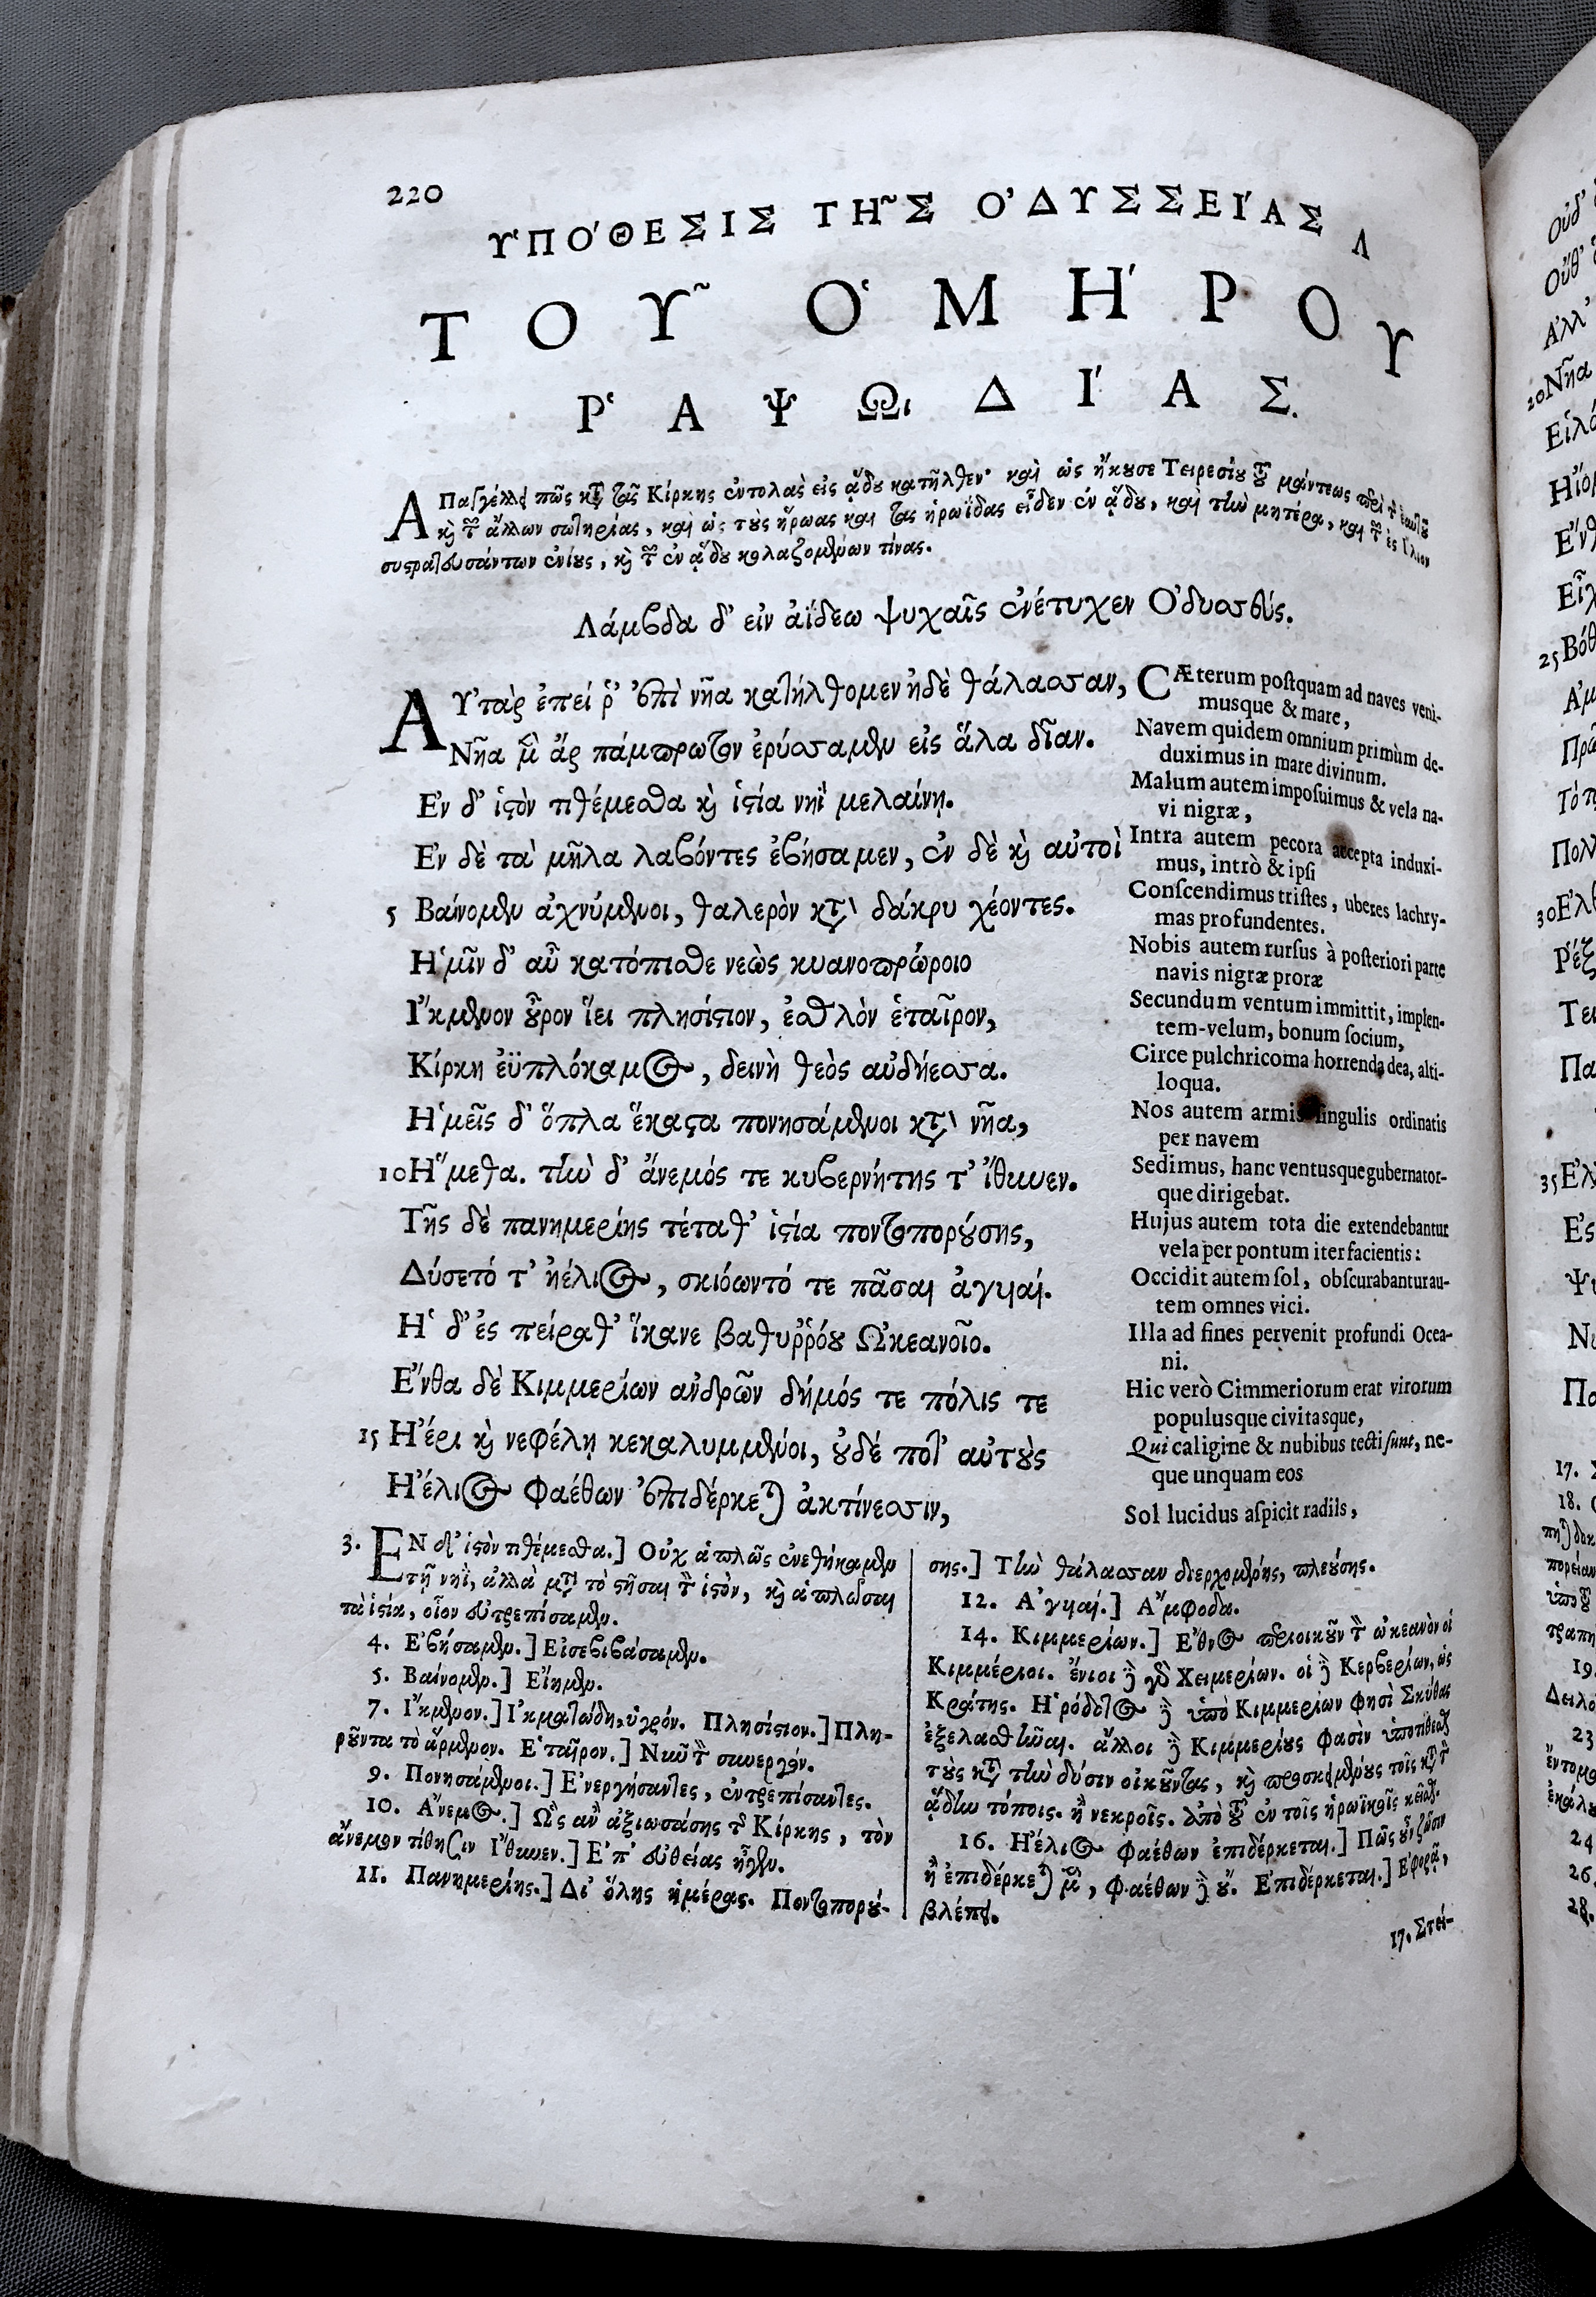 220
ΥΠΟΘΕΣΙΣ ΤΗΣ ΟΔΥΣΣΕΙΑΣ Λ
ΤΟΥ ΟΜΗΡΟΥ
ΡΑΨΩιΔΙΑΣ.
Απαγγέλλει πῶς κατὰ τὰς Κίρκης ἐντολὰς εἰς ᾅδου κατῆλθεν· καὶ ὡς ἤκουσε Τειρεσίου τοῦ μάντεως περὶ τε ἑαυτοῦ
καὶ τῶν ἄλλων σωτηρίας, καὶ ὡς τοὺς ἥρωας καὶ τὰς ἡρωΐδας εἶδεν ἐν ᾅδου, καὶ τὴν μητέρα, καὶ τῶν ἐς Ἴλιον
συστρατευσάντων ἐνίους, καὶ τῶν ἐν ᾅδου κολαζομένων τίνας.
Λάμβδα δ' εἰν ἀΐδεω ψυχαῖς ἐνέτυχεν Ὀδυσσεύς.
ΑΥτὰρ ἐπεί ῥ' ἐπὶ νῆα κατήλθομεν ἠδὲ θάλασσαν,
Νῆα μὲν ἂρ πάμπρωτον ἐρύσσαμεν εἰς ἅλα δῖαν.
Ἐν δ' ἱστὸν τιθέμεσθα καὶ ἱστία νηῒ μελαίνῃ.
Ἐν δὲ τὰ μῆλα λαβόντες ἐβήσαμεν, ἐν δὲ καὶ αὐτοὶ
5 Βαίνομεν ἀχνύμενοι, θαλερὸν κατὰ δάκρυ χέοντες.
Ἡμῖν δ' αὖ κατόπισθε νεὼς κυανοπρώροιο
Ἴκμενον οὖρον ἵει πλησίστιον, ἐσθλὸν ἑταῖρον,
Κίρκη ἐϋπλόκαμος, δεινὴ θεὸς αὐδήεσσα.
Ἡμεῖς δ' ὅπλα ἕκαστα πονησάμενοι κατὰ νῆα,
10 Ἥμεθα. τὴν δ' ἄνεμός τε κυβερνήτης τ' ἴθυνεν.
Τῆς δὲ πανημερίης τέταθ' ἱστία ποντοπορούσης,
Δύσετό τ' ἠέλιος, σκιόωντό τε πᾶσαι ἀγυιαί.
Ἡ δ' ἐς πείραθ' ἵκανε βαθυῤῥόου Ὠκεανοῖο.
Ἔνθα δὲ Κιμμερίων ἀνδρῶν δήμός τε πόλις τε
15 Ἠέρι καὶ νεφέλῃ κεκαλυμμένοι, οὐδέ ποτ' αὐτοὺς
Ἠέλιος Φαέθων ἐπιδέρκεται ἀκτίνεσσιν,
CÆterum poſtquam ad naves veni-
musque & mare,
Navem quidem omnium primùm de-
duximus in mare divinum.
Malum autem impoſuimus & vela na-
vi nigræ,
Intra autem pecora accepta induxi-
mus, intrò & ipſi
Conſcendimus triſtes, uberes lachry-
mas profundentes.
Nobis autem rurſus à poſteriori parte
navis nigræ proræ
Secundum ventum immittit, implen-
tem-velum, bonum ſocium,
Circe pulchricoma horrenda dea, alti-
loqua.
Nos autem armis ſingulis ordinatis
per navem
Sedimus, hanc ventusque gubernator-
que dirigebat.
Hujus autem tota die extendebantur
vela per pontum iter facientis:
Occidit autem ſol, obſcurabantur au-
tem omnes vici.
Illa ad fines pervenit profundi Ocea-
ni.
Hic verò Cimmeriorum erat virorum
populusque civitasque,
Qui caligine & nubibus tecti ſunt, ne-
que unquam eos
Sol lucidus aſpicit radiis,
3. ΕΝ δ' ἱστὸν τιθέμεσθα.] Οὐχ ἁπλῶς ἐνεθήκαμεν
τῇ νηῒ, ἀλλὰ μετὰ τὸ στῆσαι τὸν ἱστὸν, καὶ ἁπλῶσαι
τὰ ἱστία, οἷον εὐτρεπίσαμεν.
4. Ἐβήσαμεν.] Εἰσεβιβάσαμεν.
5. Βαίνομεν.] Εἴημεν.
7. Ἴκμενον.] Ἰκματώδη, ὑγρόν. Πλησίστιον.] Πλη-
ροῦντα τὸ ἄρμενον. Ἑταῖρον.] Νῦν τὸν συνεργόν.
9. Πονησάμενοι.] Ἐνεργήσαντες, εὐτρεπίσαντες.
10. Ἄνεμος.] Ὡς ἂν ἀξιωσάσης τῆς Κίρκης, τὸν
ἄνεμον τίθησιν Ἴθυνεν.] Ἐπ' εὐθείας ἦγεν.
11. Πανημερίης.] Δι' ὅλης ἡμέρας. Ποντοπορού-
σης.] Τὴν θάλασσαν διερχομένης, πλεούσης.
12. Ἀγυιαί.] Ἄμφοδα.
14. Κιμμερίων.] Ἔθνος περιοικοῦν τὸν ὠκεανὸν οἱ
Κιμμέριοι. ἔνιοι δὲ γρ. Χειμερίων. οἱ δὲ Κερβερίων, ὡς
Κράτης. Ἡρόδοτος δὲ ὑπὸ Κιμμερίων φησὶ Σκύθας
ἐξελασθῆναι. ἄλλοι δὲ Κιμμερίους φασὶν ὑποτίθεσθαι
τοὺς κατὰ τὴν δύσιν οἰκοῦντας, καὶ προσκειμένους τοῖς κατὰ τὸν
ᾅδην τόποις. ἢ νεκροῖς. ἀπὸ τοῦ ἐν τοῖς ἠρωϊκοῖς κεῖσθαι.
16. Ἠέλιος Φαέθων ἐπιδέρκεται.] Πῶς οὖν ζῶσιν
ἢ ἐπιδέρκεται μὲν, Φαέθων δὲ οὔ. Ἐπιδέρκεται.] Ἐφορᾷ,
βλέπει.
17. Στεί-